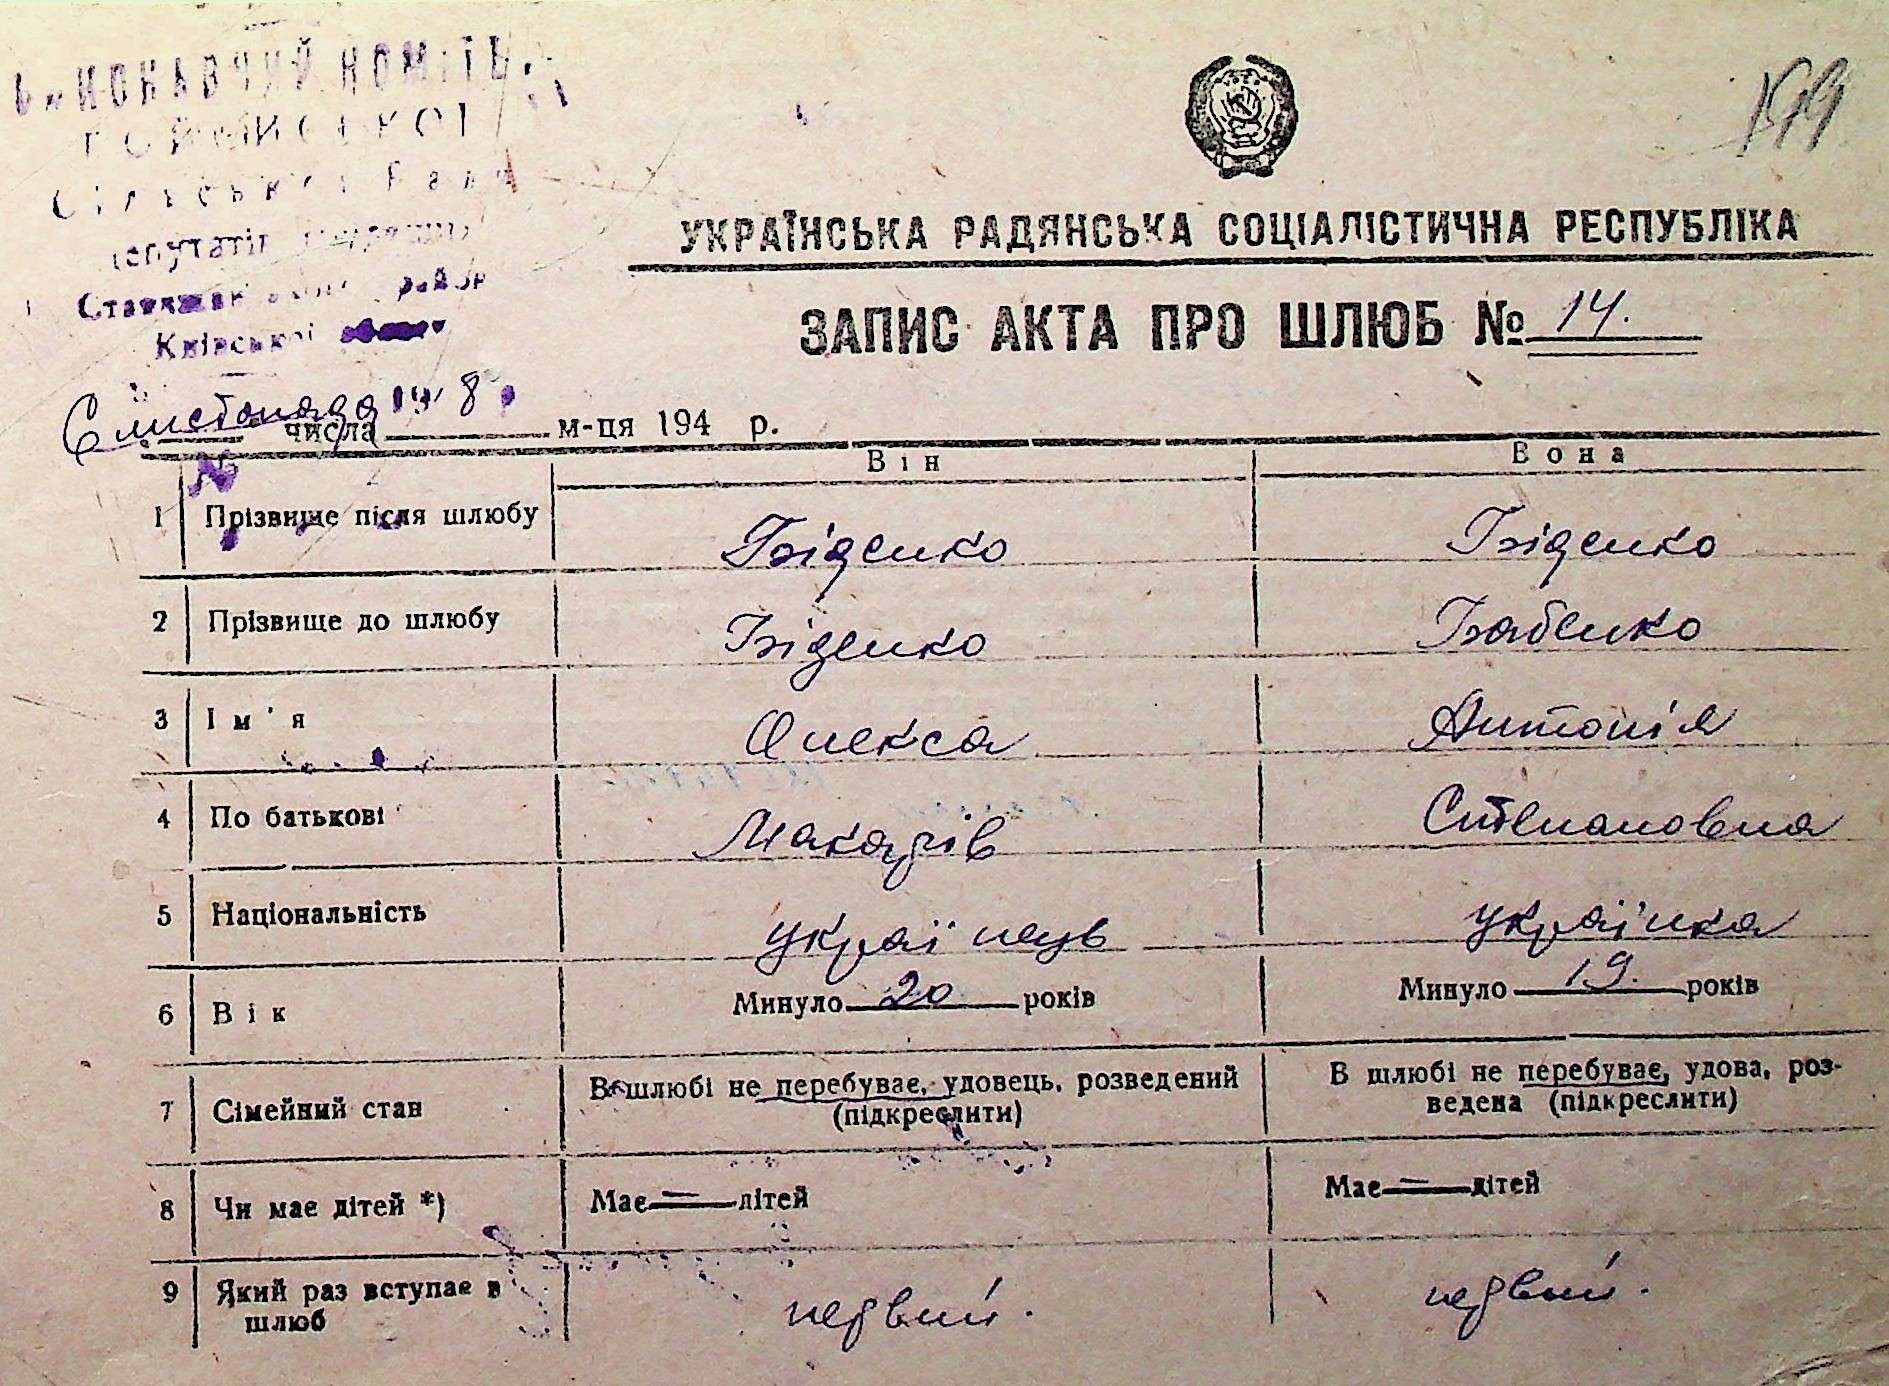 КОНАВЧИЙ КОМІТЕ
Сільської Ради
депутатів
район
Київської
6 листопада 1948 р.
УКРАЇНСЬКА РАДЯНСЬКА СОЦІАЛІСТИЧНА РЕСПУБЛІКА
ЗАПИС АКТА ПРО ШЛЮБ № 14.
числа м-ця 194 р.
Він Вона
1 Прізвище після шлюбу Біденко Біденко
2 Прізвище до шлюбу Біденко Бабенко
3 Ім'я Олекса Антонія
4 По батькові Макарів Степановна
5 Національність українець українка
6 Вік Минуло 20 років Минуло 19. років
7 Сімейний стан В шлюбі не перебуває, удовець, розведений (підкреслити) В шлюбі не перебуває, удова, роз-
ведена (підкреслити)
8 Чи має дітей *) Має — дітей Має — дітей
9 Який раз вступає в
шлюб первий. первий.